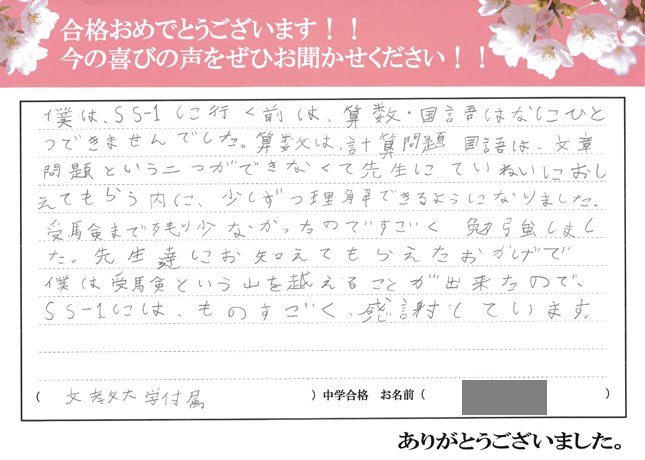 合格おめでとうございます！！
今の喜びの声をぜひお聞かせください！！
僕は、SS-1に行く前は、算数・国語はなにひと
つできませんでした。算数は、計算問題 国語は、文章
問題という二つができなくて先生にていねいにおし
えてもらう内に、少しずつ理解できるようになりました。
受験まで残り少なかったのですごく 勉強しまし
た。先生達にお知えてもらえたおかげで
僕は受験という山を越えることが出来たので、
SS-1には、ものすごく、感謝しています。
（ 文教大学付属 ）中学合格 お名前（ ）
ありがとうございました。